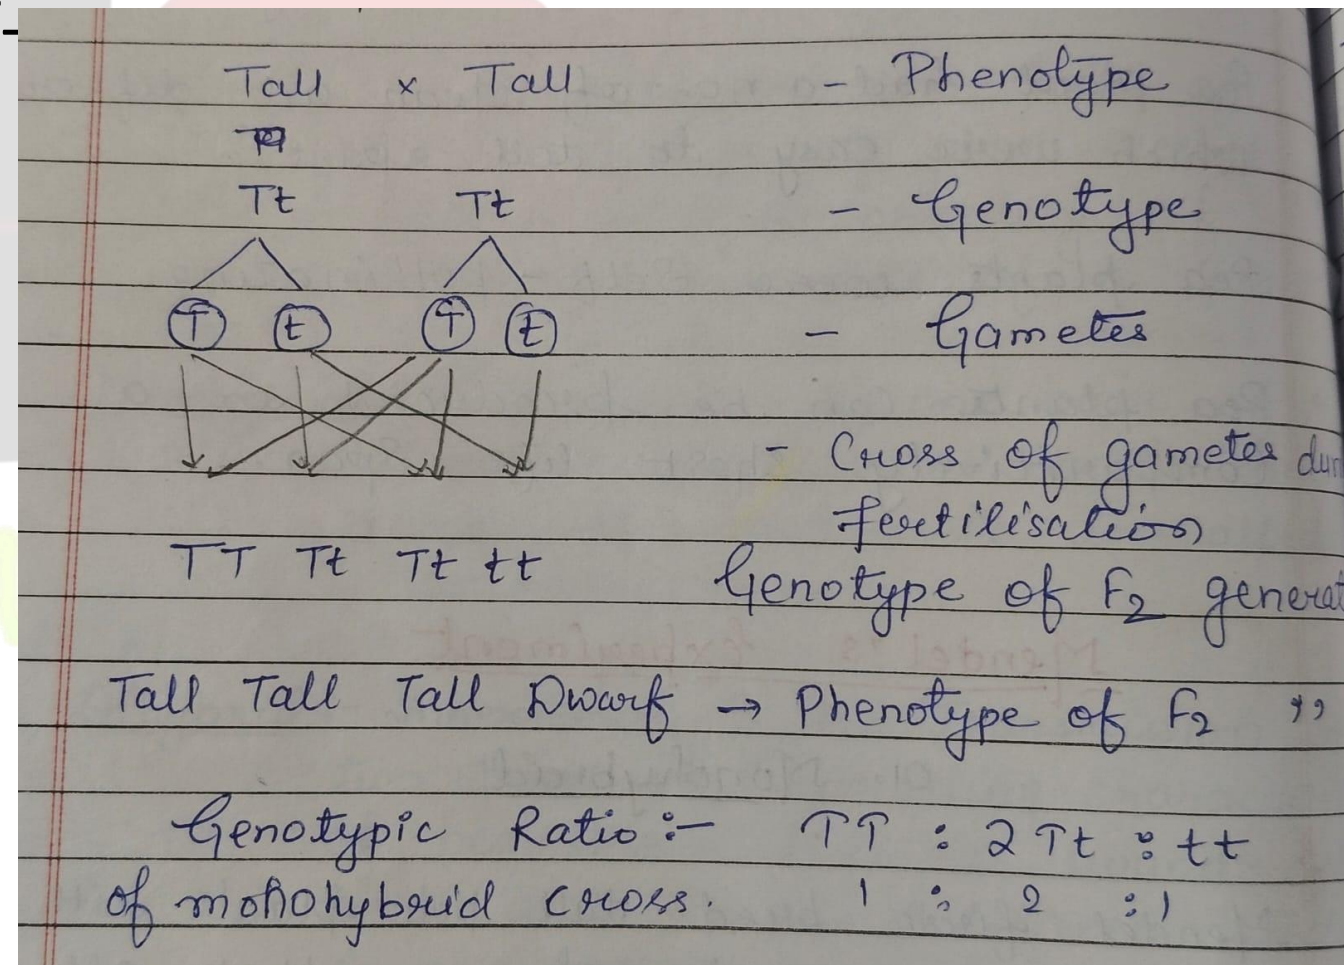 Tall x Tall - Phenotype
Tt Tt - Genotype
T t T t - Gametes
- Cross of gametes
fertilisation
TT Tt Tt tt Genotype of F2
Tall Tall Tall Dwarf → Phenotype of F2 ,,
Genotypic Ratio :- TT : 2 Tt : tt
of monohybrid cross. 1 : 2 : 1